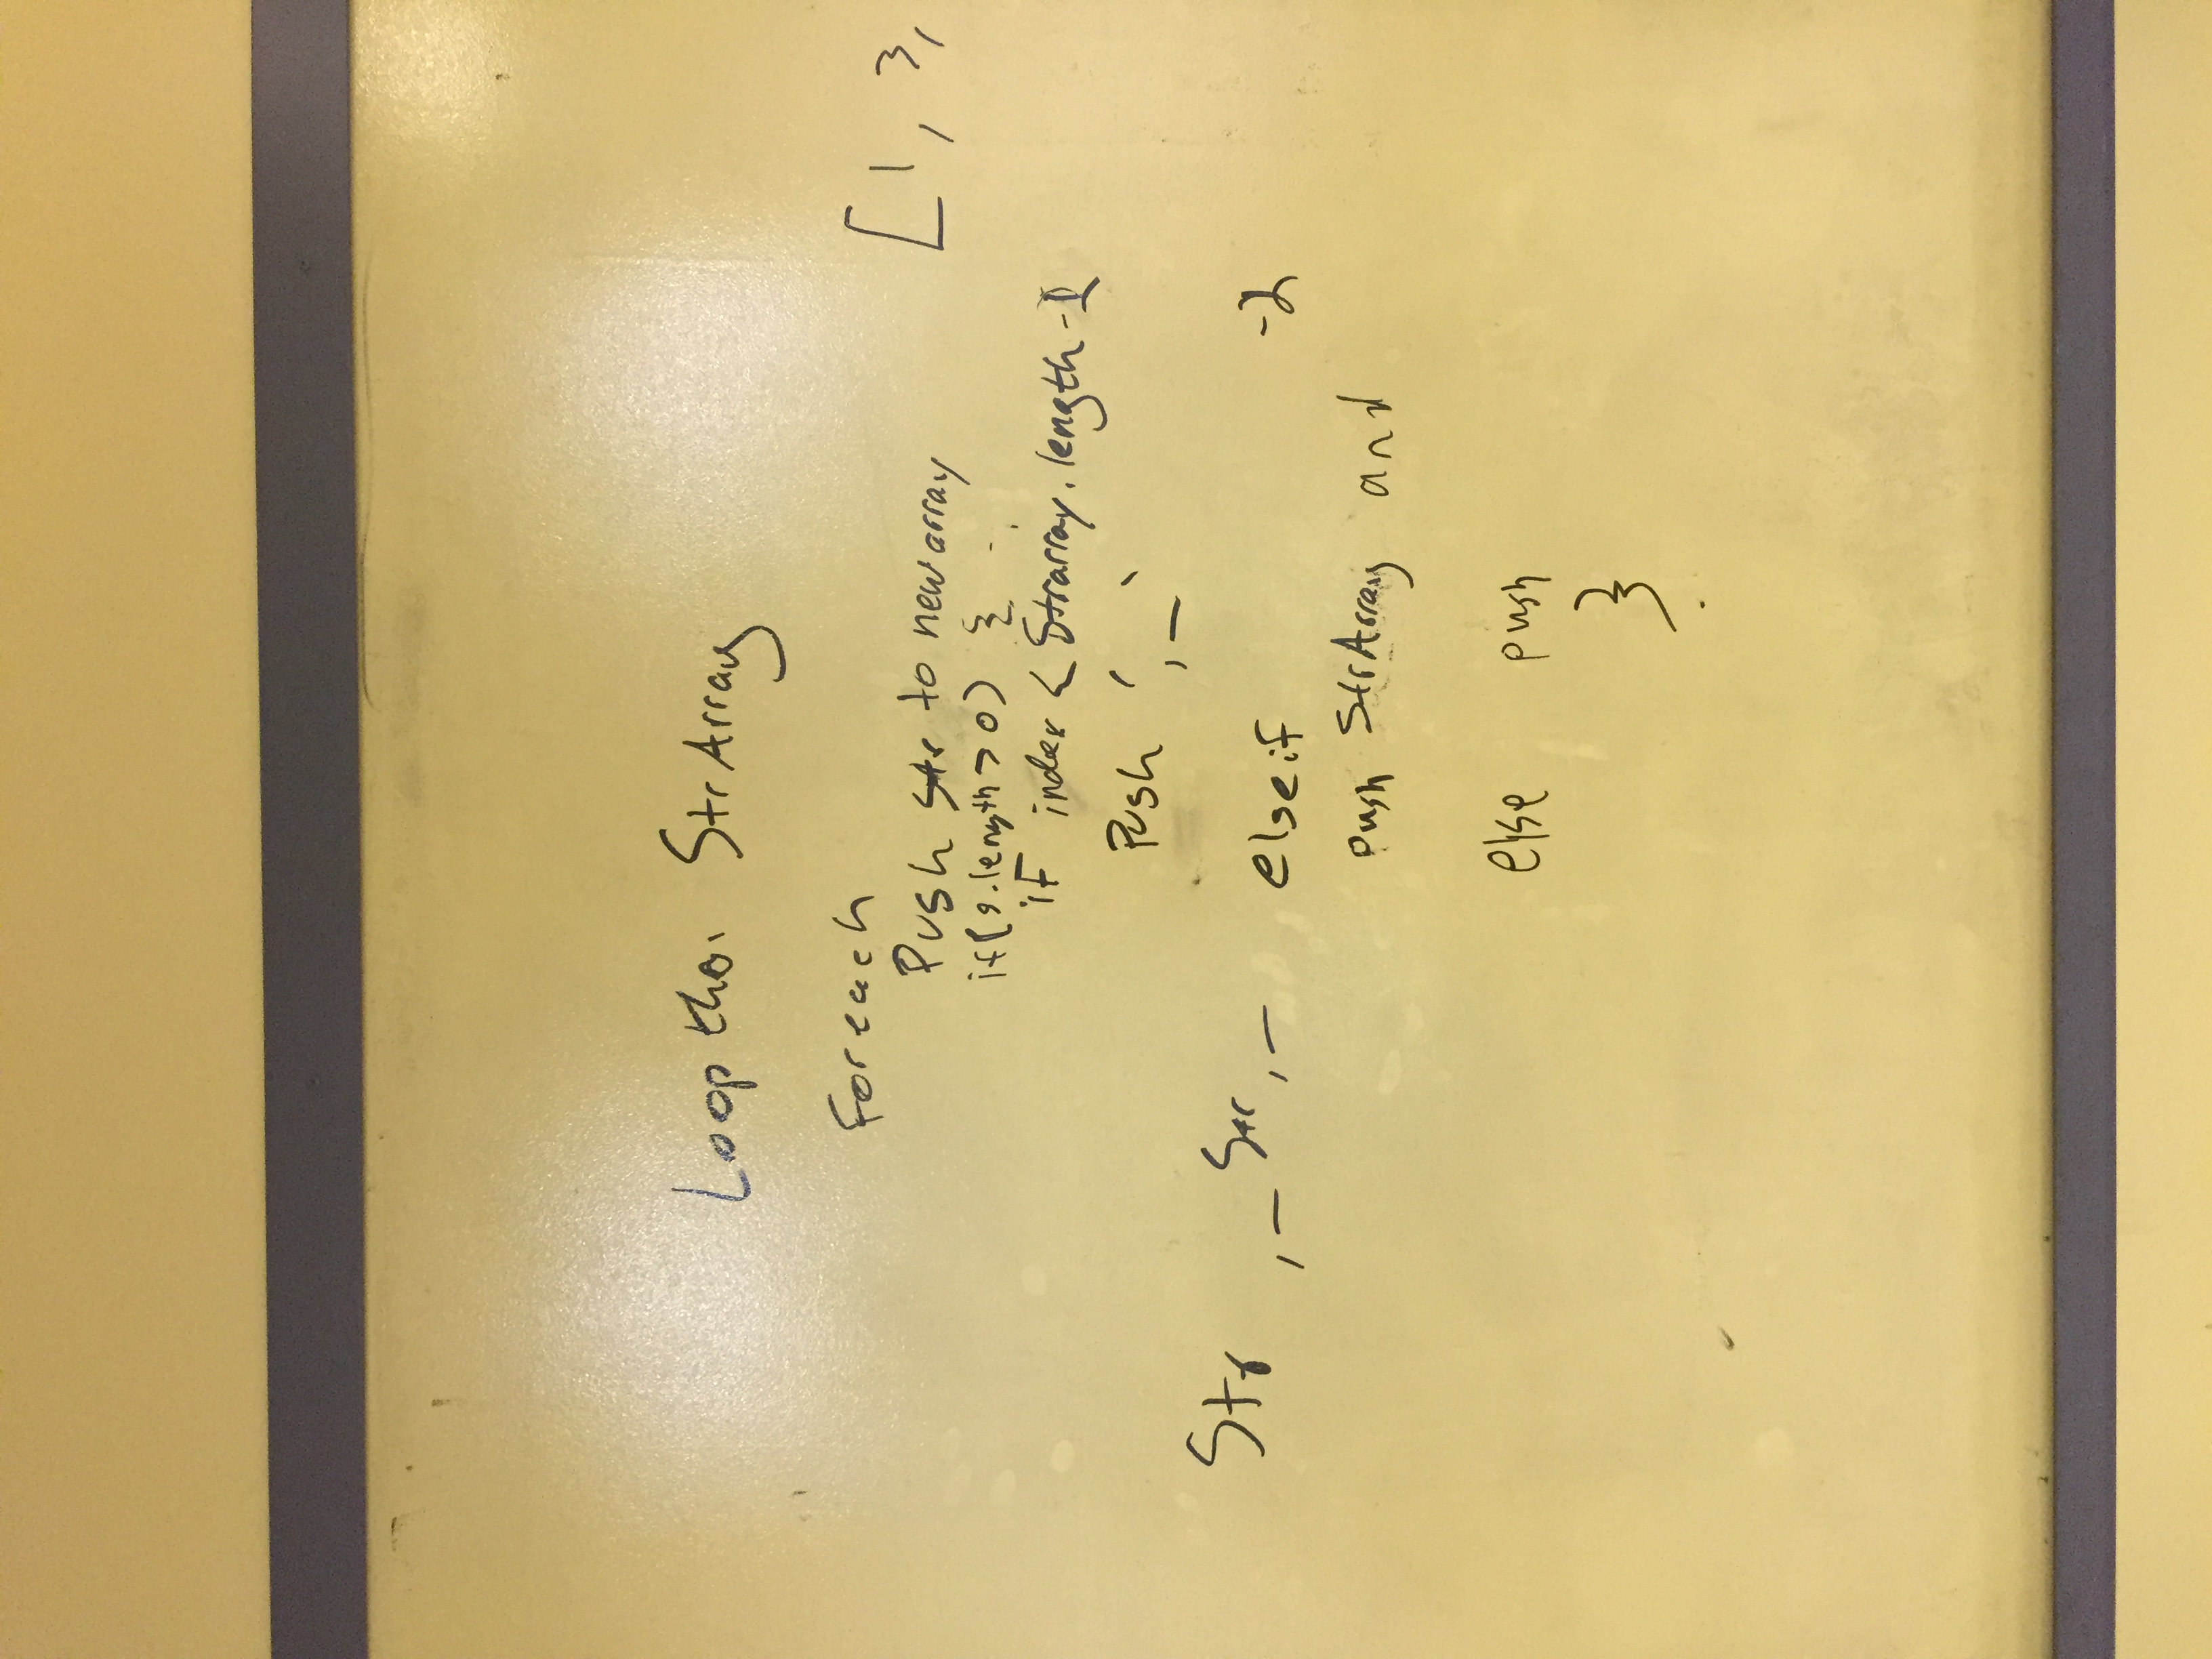 Loop tho. StrArray
foreach
Push str to newarray
[1, 3,
if(s.length>0) {
if index < Strarray.length-1
Push ',_'
Str ,_ Str,_
elseif -2
push StrArray and
else push
}